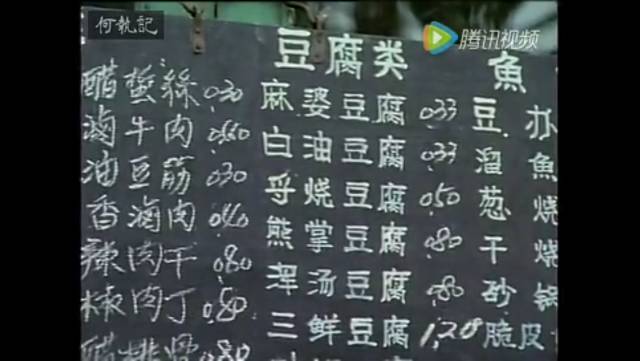 何執記
腾讯视频
豆腐类
魚
醋蜇絲 0.30
滷牛肉
油豆筋 0.30
香滷肉 0.40
辣肉干 0.80
椒肉丁 0.80
醋排骨 0.80
麻婆豆腐 0.33
白油豆腐 0.33
乎烧豆腐 0.50
熊掌豆腐 0.80
浑汤豆腐 0.80
三鲜豆腐 1.20
豆
溜魚
葱烧
干烧
砂锅
脆皮